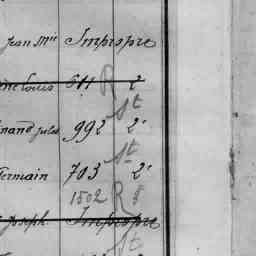 Jean Mie Impropre
Louis 611 R 2
St
nand Jules 992 2
St
Germain 703 2
1502 R
Joseph Impropre
St